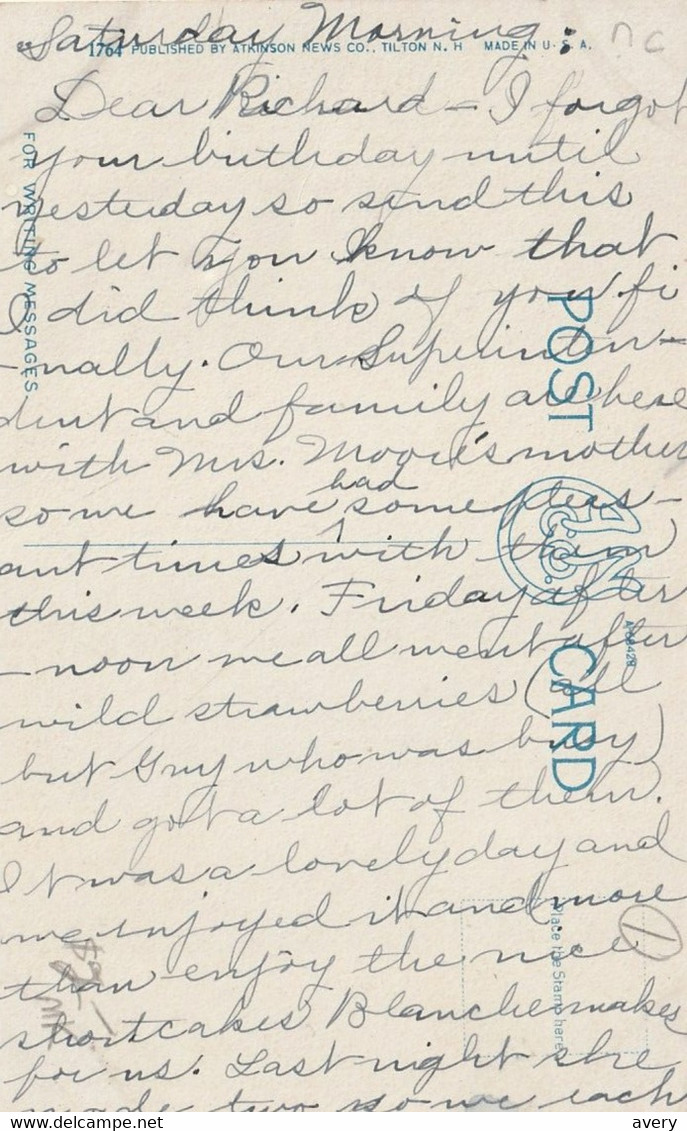 Saturday Morning;
1764 PUBLISHED BY ATKINSON NEWS CO., TILTON N. H MADE IN U. S. A.
Dear Richard – I forgot
your birthday until
yesterday so send this
to let you know that
I did think of you fi
-nally. Our Superinten-
dent and family are here
with Mrs. Moore's mother
so we have had some pleas-
ant times with them
this week. Friday after
-noon we all went after
wild strawberries (all
but Guy who was busy)
and got a lot of them.
It was a lovely day and
we enjoyed it and more
than enjoy the nice
shortcakes Blanche makes
for us. Last night she
made two so we each
FOR WRITING MESSAGES
POST CARD
Place the Stamp here
1
avery